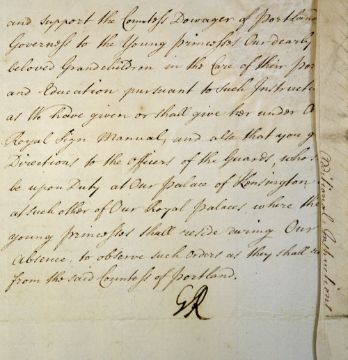 and support the Countess Dowager of Portland
Governess to the Young Princesses Our dearly
beloved Grandchildren in the Care of their
and Education pursuant to such Instruct
as We have given or shall give her under
Royal Sign Manual, and also that you
Directions to the Officers of the Guards, who
be upon Duty at Our Palace of Kensington
at such other of Our Royal Palaces where the
young Princesses shall reside during Our
Absence, to observe such orders as they shall
from the said Countess of Portland.
GR
ditional Instructions